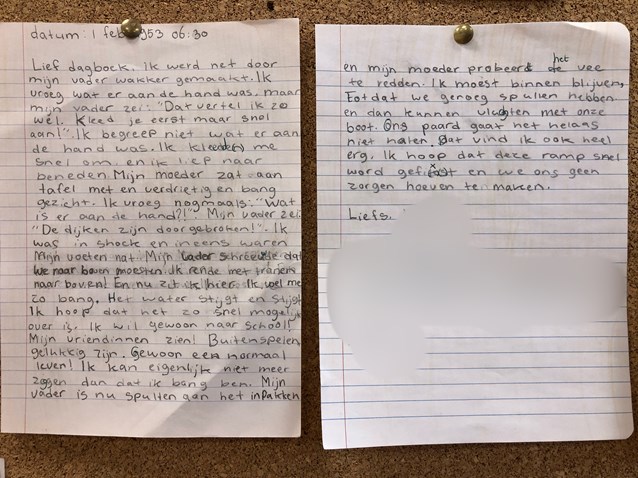 datum: 1 feb 1953 06:30
Lief dagboek, ik werd net door
mijn vader wakker gemaakt. Ik
vroeg wat er aan de hand was, maar
mijn vader zei: "Dat vertel ik zo
wel. Kleed je eerst maar snel
aan!". Ik begreep niet wat er aan
de hand was. Ik kleedde me
snel om en ik liep naar
beneden. Mijn moeder zat aan
tafel met en verdrietig en bang
gezicht. Ik vroeg nogmaals: "Wat
is er aan de hand?!" Mijn vader zei:
"De dijken zijn doorgebroken!". Ik
was in shock en ineens waren
Mijn voeten nat. Mijn vader schreeuwde dat
we naar boven moesten. Ik rende met tranen
naar boven! En nu zit ik hier. Ik voel me
zo bang. Het water stijgt en stijgt
Ik hoop dat het zo snel mogelijk
over is. Ik wil gewoon naar school!
Mijn vriendinnen zien! Buitenspelen,
gelukkig zijn. Gewoon een normaal
leven! Ik kan eigenlijk niet meer
zeggen dan dat ik bang ben. Mijn
vader is nu spullen aan het inpakken
en mijn moeder probeerd het vee
te redden. Ik moest binnen blijven,
totdat we genoeg spullen hebben
en dan kunnen vluchten met onze
boot. Ons paard gaat het helaas
niet halen. Dat vind ik ook heel
erg. Ik hoop dat deze ramp snel
word gefixt en we ons geen
zorgen hoeven te maken.
Liefs,